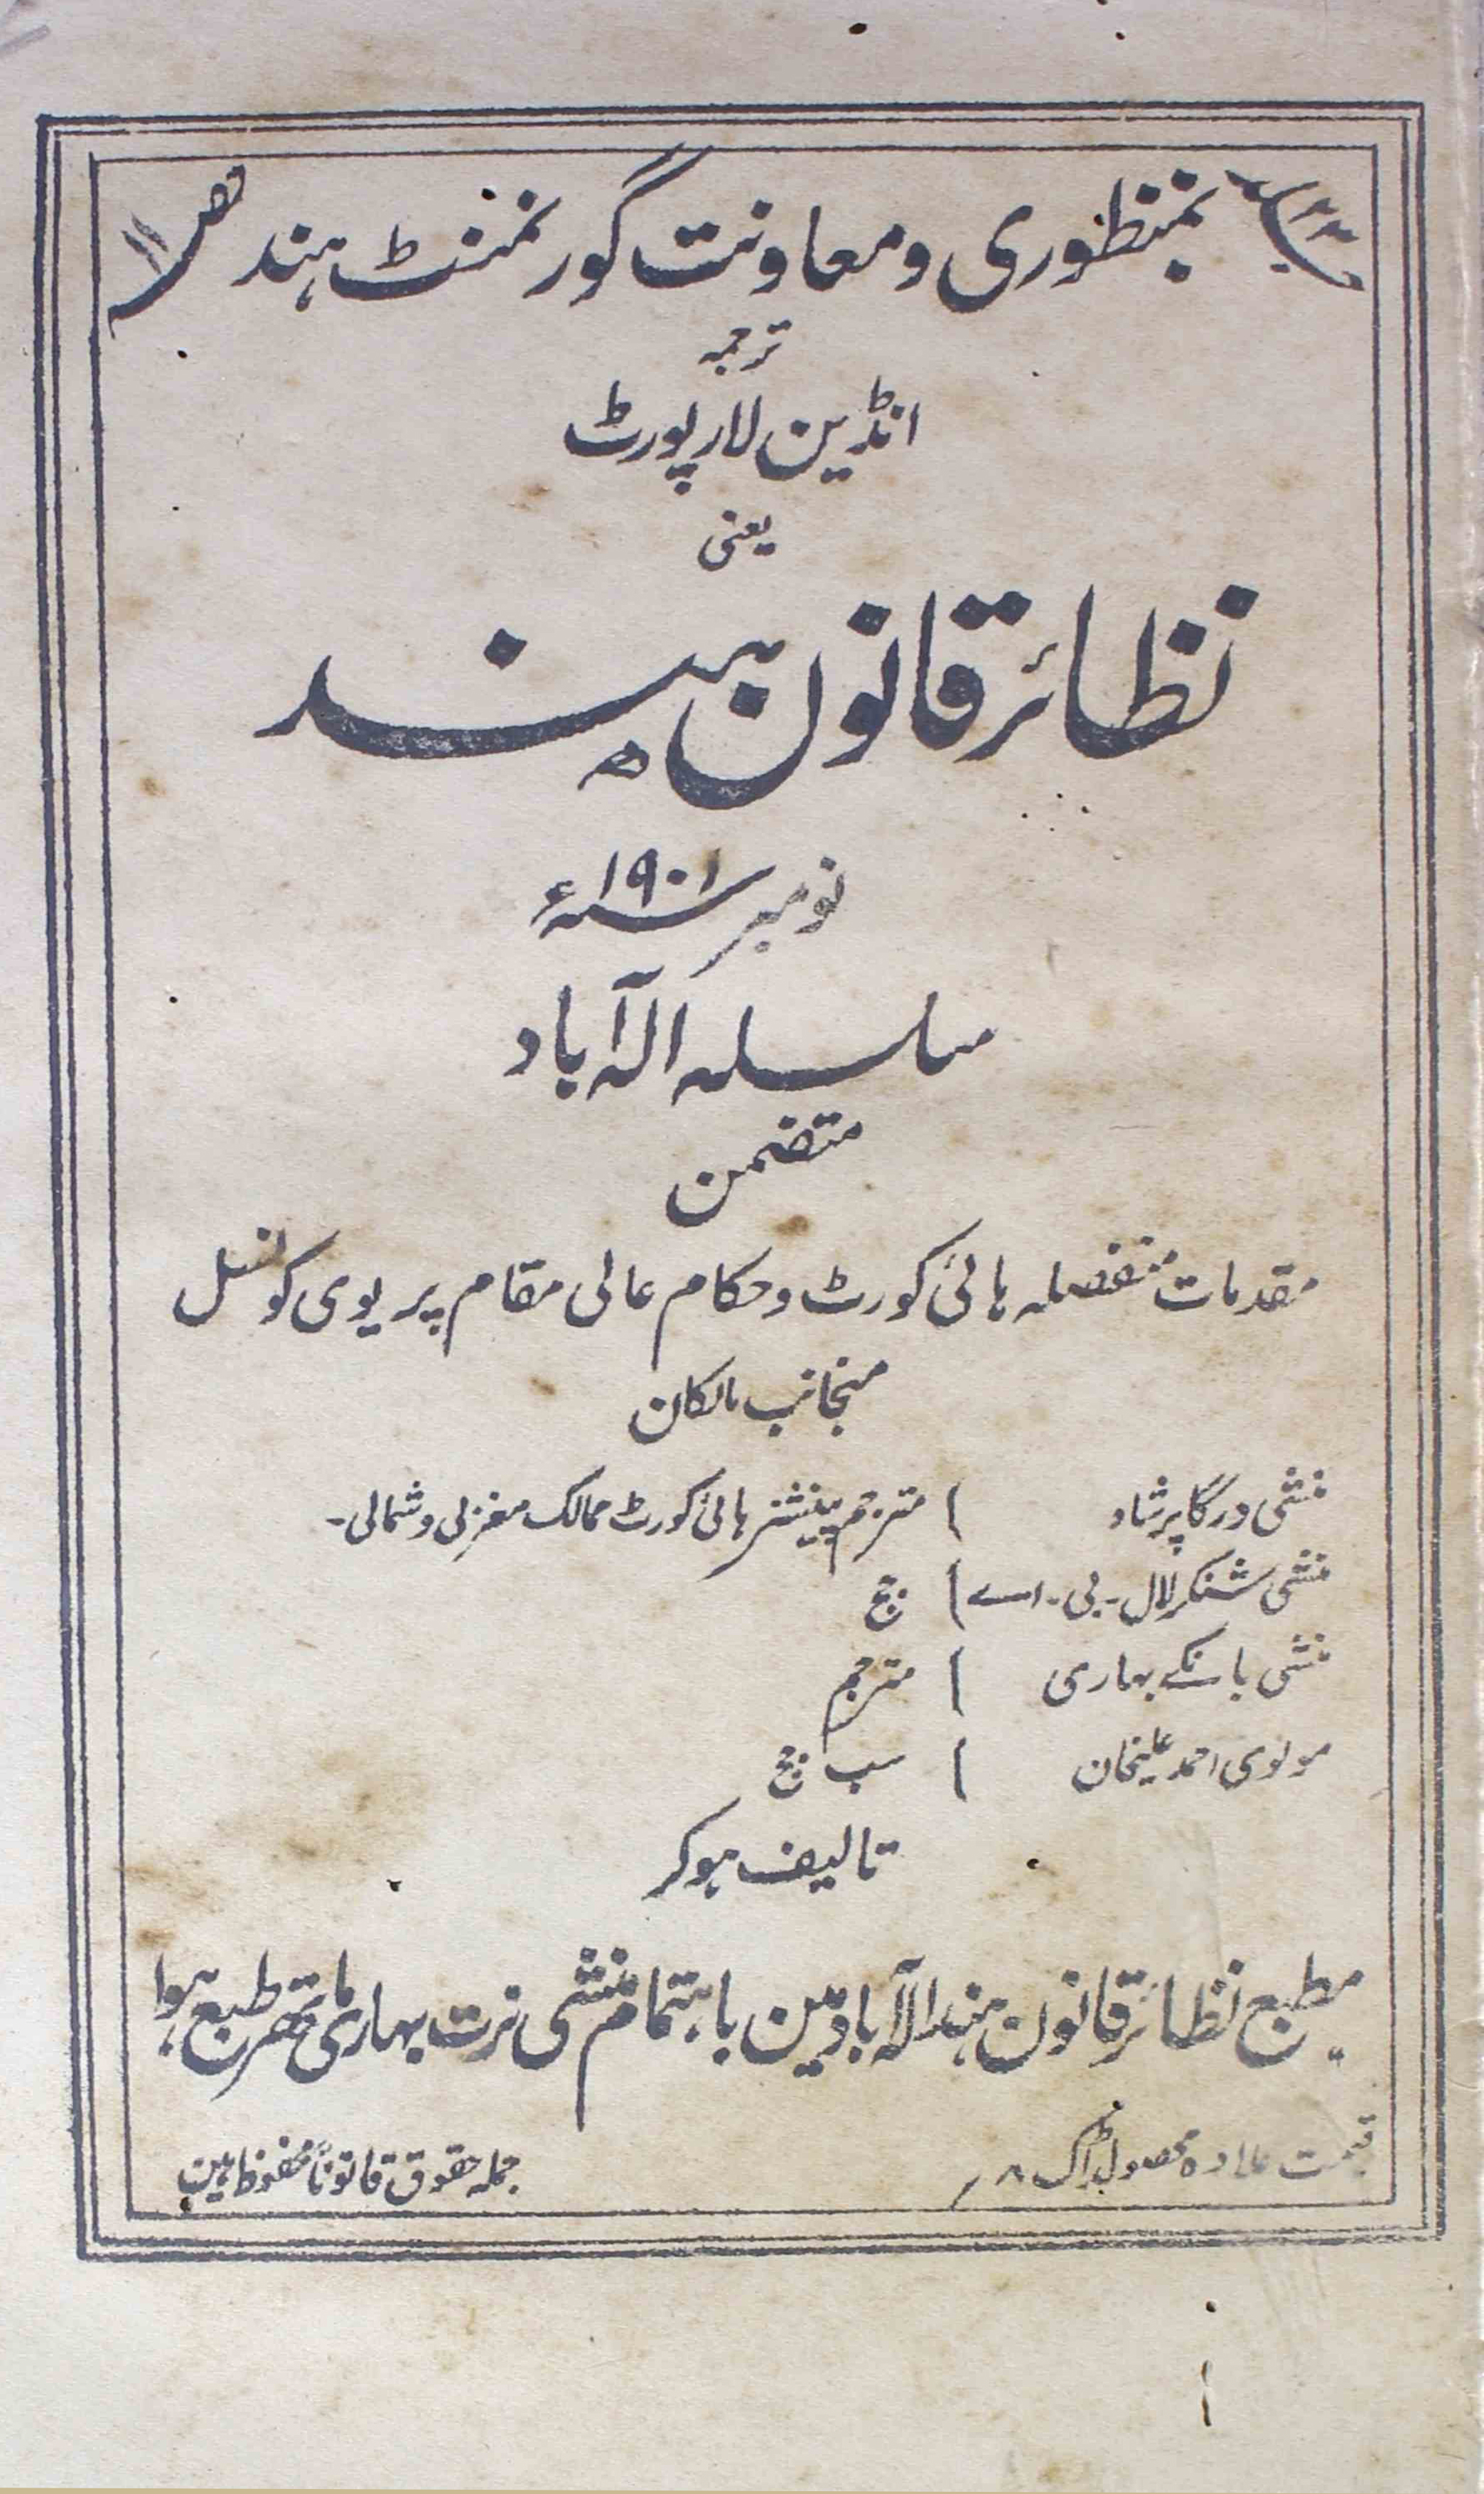 بمنظوری و معاونت گورنمنٹ ہند حصہ ۱۱
ترجمہ
انڈین لا رپورٹ
یعنی
نظائر قانون ہند
نومبر سنہ ۱۹۰۱ء
سلسلہ الہ آباد
متضمن
مقدمات منفصلہ ہائی کورٹ و حکام عالی مقام پریوی کونسل
منجانب مالکان
منشی درگا پرشاد ) مترجم پینشنر ہائی کورٹ ممالک مغربی و شمالی۔
منشی شنکر لال۔ بی۔ اے ) جج
منشی بانکے بہاری ) مترجم
مولوی احمد علیخان ) سب جج
تالیف ہوکر
مطبع نظائر قانون ہند الہ آباد مین باہتمام منشی نرت بہاری ماتھر طبع ہوا
قیمت علاوہ محصول ڈاک ۸؍
جملہ حقوق قانوناً محفوظ ہین